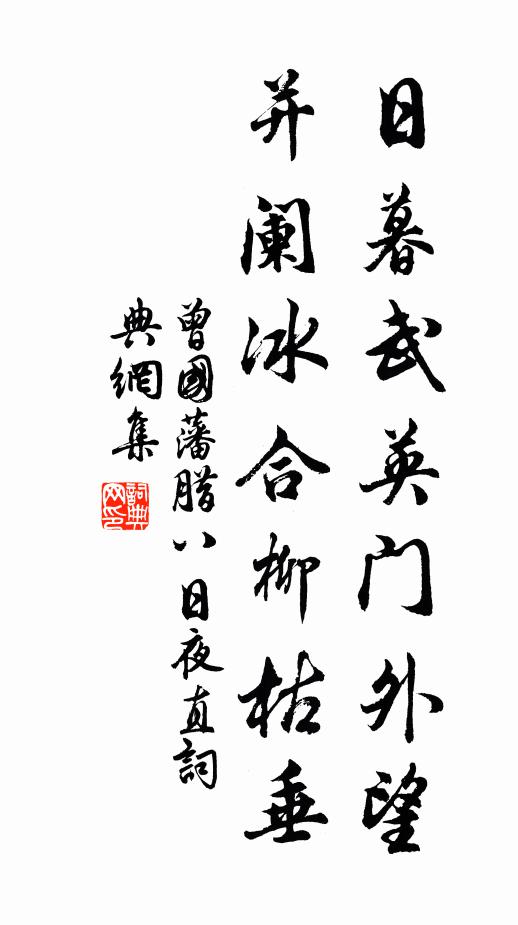 日暮武英门外望
并阑冰合柳枯垂
曾國藩腊八日夜直詞
典網集
詞典網印